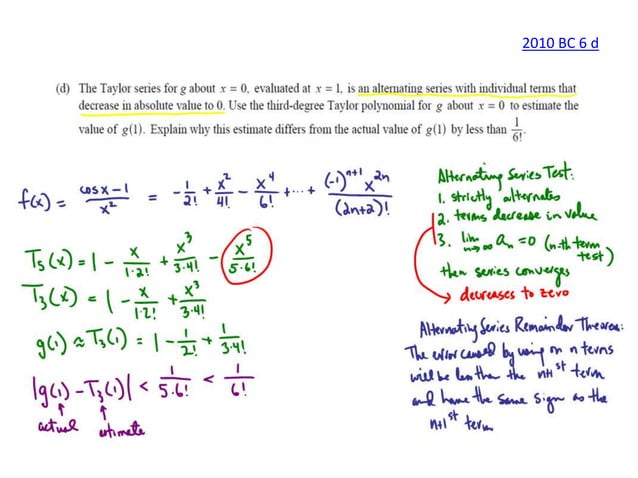 2010 BC 6 d
(d) The Taylor series for g about x = 0, evaluated at x = 1, is an alternating series with individual terms that
decrease in absolute value to 0. Use the third-degree Taylor polynomial for g about x = 0 to estimate the
value of g(1). Explain why this estimate differs from the actual value of g(1) by less than 1/6!.
f(x) = (cosx-1)/x² = -1/2! + x²/4! - x⁴/6! + ... + (-1)ⁿ⁺¹ x²ⁿ/(2n+2)!
T₅(x) = 1 - x/1·2! + x³/3·4! - x⁵/5·6!
T₃(x) = 1 - x/1·2! + x³/3·4!
g(1) ≈ T₃(1) = 1 - 1/2! + 1/3·4!
|g(1) - T₃(1)| < 1/5·6! < 1/6!
actual estimate
Alternating Series Test:
1. strictly alternates
2. terms decrease in value
3. lim n→∞ aₙ = 0 (n-th term test)
then series converges
→ decreases to zero
Alternating Series Remainder Theorem:
The error caused by using on n terms
will be less than the n+1ˢᵗ term
and have the same sign as the
n+1ˢᵗ term